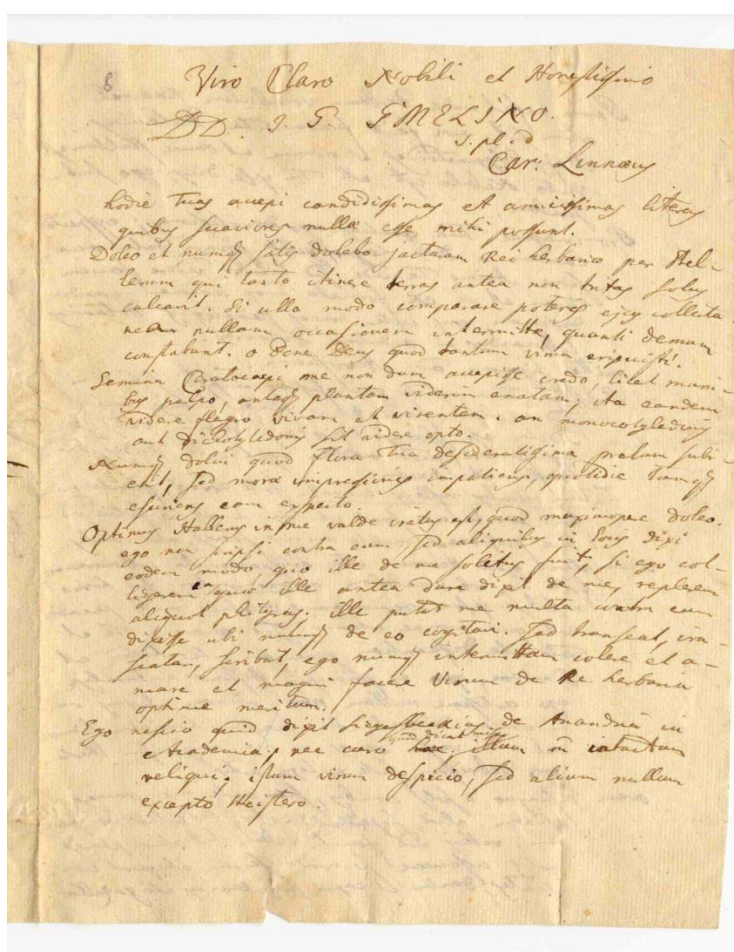 8
Viro Claro Nobili et Honestissimo
DD. J. G. GMELINO.
S. pl. d
Car. Linnæus
hodie tuas accepi candidissimas et amicissimas literas
quibus suaviores nulla esse mihi possunt.
Doleo et numqȝ satis dolebo jacturam Rei herbariæ per Stel-
lerum qui tanto itinere terras antea non tritas solus
calcavit. Si ullo modo comparare poteris ejus collecta
nea nullam occasionem intermitte, quanti demum
constabunt. o Bone Deus quod tantum virum eripuisti!
Semina Coralocarpi me non dum accepisse credo, licet mani-
bus palpo, anteqȝ plantam viderim enatam; ita eandem
videre flagro vivam et virentem. an monocotyledonis
aut dicotyledonis sit videre opto.
Numqȝ dolui quod flora tua desideratissima prelum subi-
erit, sed mora impressionis impatiens, quotidie tamqȝ
esuriens eam expecto.
Optimus Hallerus in me valde iratus est, quod maximopere doleo.
ego non scripsi contra eum sed aliquibus in locis dixi
eodem modo, quo ille de me solitus fuit, si ego col-
ligerem ea quæ ille antea dure dixit de me, replerem
aliquot philyras. ille putat me multa contra eum
dixisse ubi numqȝ de eo cogitavi. sed transeat, ira-
scatur, scribat, ego numqȝ intermittam colere et a-
mare et magni facere Virum de Re herbaria
optime meritum.
Ego nescio quid dixit Siegesbeckius de Anandria in
Academia; nec curo quid dicat illum in intactum
reliqui; istum virum despicio, sed alium nullum
excepto Heistero.